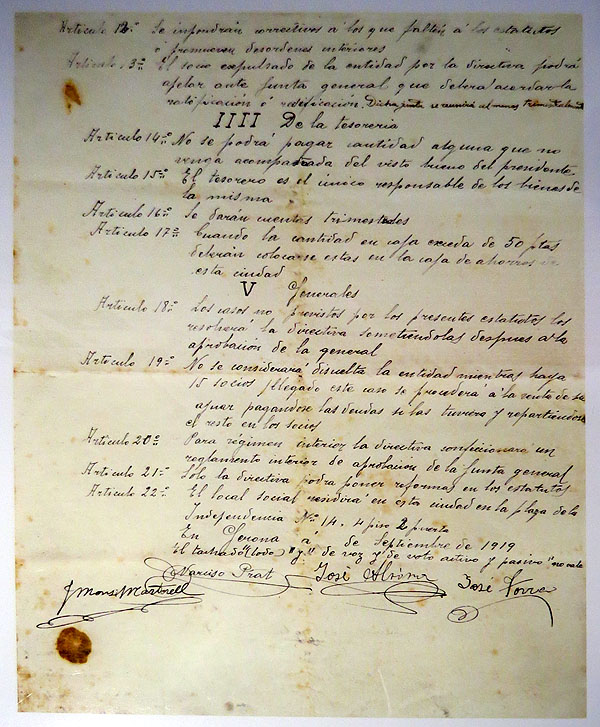 Articulo 12º Se inpondrán correctivos á los que falten á los estatutos
ó promueven desordenes interiores
Articulo 13º El socio expulsado de la entidad por la directiva podrá
apelar ante Junta general que deberá acordar la
ratificación ó rectificación. Dicha junta se reunirá al menos
IIII De la tesoreria
Articulo 14º No se podrá pagar cantidad alguna que no
venga acompañada del visto bueno del presidente
Articulo 15º El tesorero es el único responsable de los bienes de
la misma
Articulo 16º Se darán cuentas trimestrales
Articulo 17º Cuando la cantidad en caja exceda de 50 ptas
deberán colocarse estas en la caja de ahorros de
esta ciudad
V Generales
Articulo 18º Los casos no previstos por los presentes estatutos los
resolvera la directiva sometiéndolas despues á la
aprobación de la general
Articulo 19º No se considerará disuelta la entidad mientras haya
15 socios, llegado este caso se procederá á la venta de su
ajuar pagandose las deudas si las tuviera y repartiendose
el resto en los socios
Articulo 20º Para régimen interior la directiva confeccionará un
reglamento interior de aprobación de la Junta general
Articulo 21º Solo la directiva podra poner reformas en los estatutos
Articulo 22º El local social residirá en esta ciudad en la plaza de la
Independencia Nº 14. 4 piso 2 puerta
En Gerona á de Septiembre de 1919
El tachado (todo) "y" de voz y de voto activo y pasivo" no vale
Narciso Prat José
José Torra
J Mons Martorell